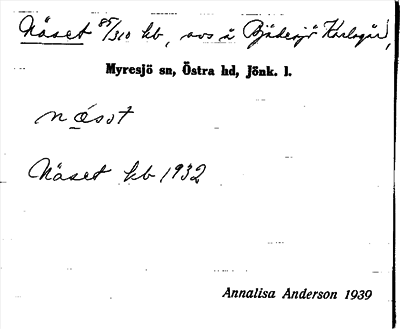 Näset 85/310 kb, avs å Bjädesjö Karlsgår,
Myresjö sn, Östra hd, Jönk. l.
näsət
Näset kb 1932
Annalisa Anderson 1939